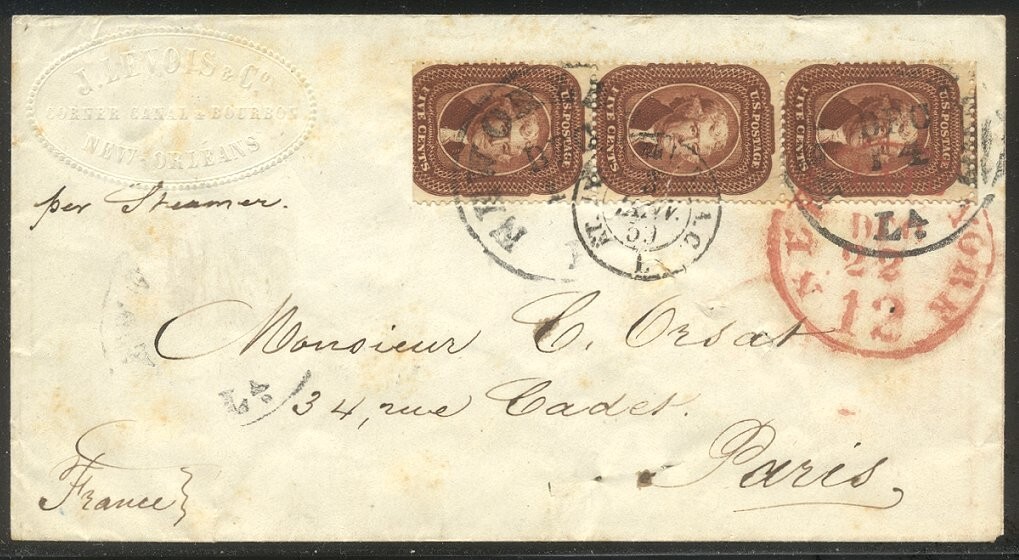 J. LEVOIS & Co.
CORNER CANAL & BOURBON
NEW-ORLEANS
U.S. POSTAGE
FIVE CENTS
U.S. POSTAGE
FIVE CENTS
U.S. POSTAGE
FIVE CENTS
per Steamer.
JANV.
59
LA
YORK
22
12
Monsieur C. Orsat
LA
34, rue Cadet.
Paris,
France